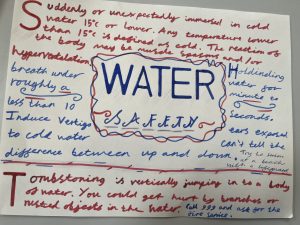 Suddenly or unexpectedly immersed in cold
water 15°c or lower. Any temperature lower
than 15°c is defined as cold. The reaction of
the body may be muscle spasms and/or
hyperventelation
breath under
roughly a
less than 10
Induce Vertigo
to cold water
difference between up and down.
WATER
SAFETY
Holdending
water for
minute or
Seconds.
ears exposed
can't tell the
Try to swim
at a beach
with a lifeguard
Tombstoning is vertically jumping in to a body
of water. You could get hurt by branches or
rusted objects in the water. Call 999 and ask for the
fire service.